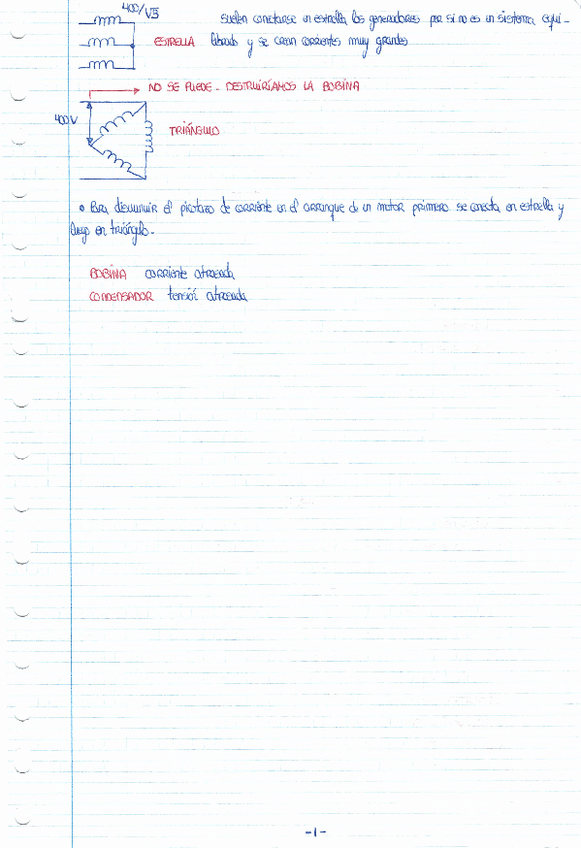 400/√3
Suelen conectarse en estrella los generadores por si no es un sistema equi-
ESTRELLA librado y se crean corrientes muy grandes
NO SE PUEDE - DESTRUIRÍAMOS LA BOBINA
400V
TRIÁNGULO
• Para disminuir el picotazo de corriente en el arranque de un motor primero se conecta en estrella y
luego en triángulo.
BOBINA corriente atrasada
CONDENSADOR tensión atrasada
-1-